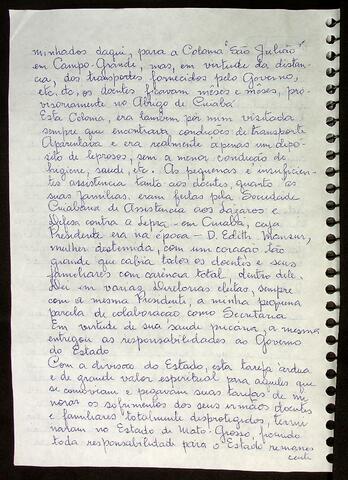 minhados daqui, para a Colonia "São Julião"
em Campo-Grande, mas, em virtude da distan-
cia, dos transportes fornecidos pelo Governo,
etc, etc, os doentes ficavam mêses e mêses, pro-
visoriamente no Abrigo de Cuiabá
Esta Colonia, era tambem por mim visitada
sempre que encontrava condições de transporte
Aparentava e era realmente apenas um depó-
sito de leprosos, sem a menor condição de
higiene, saúde, etc. As pequenas e insuficien-
tes assistencia tanto aos doentes, quanto as
suas familias, eram feitas pela Sociedade
Cuiabana de Assistencia aos Lázaros e
Defesa contra a Lepra - em Cuiabá, cuja
Presidente era na época - D. Edith Mansur,
mulher destemida, com um coração tão
grande que cabia todos os doentes e seus
familiares com carência total, dentro dele.
Dei em varias Diretorias eleitas, sempre
com a mesma Presidente, a minha pequena
parcela de colaboração como Secretária
Em virtude de sua saude precaria, a mesma
entregou as responsabilidades ao Governo
do Estado
Com a divisão do Estado, esta tarefa ardua
e de grande valor espiritual para aqueles que
se comoviam e pegavam suas tarefas de mi-
norar os sofrimentos dos seus irmãos doentes
e familiares totalmente desprotegidos, termi
naram no Estado de Mato-Grosso, ficando
toda responsabilidade para o Estado remanes
cente